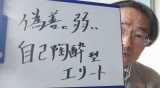 偽善に弱い
自己陶酔型
エリート